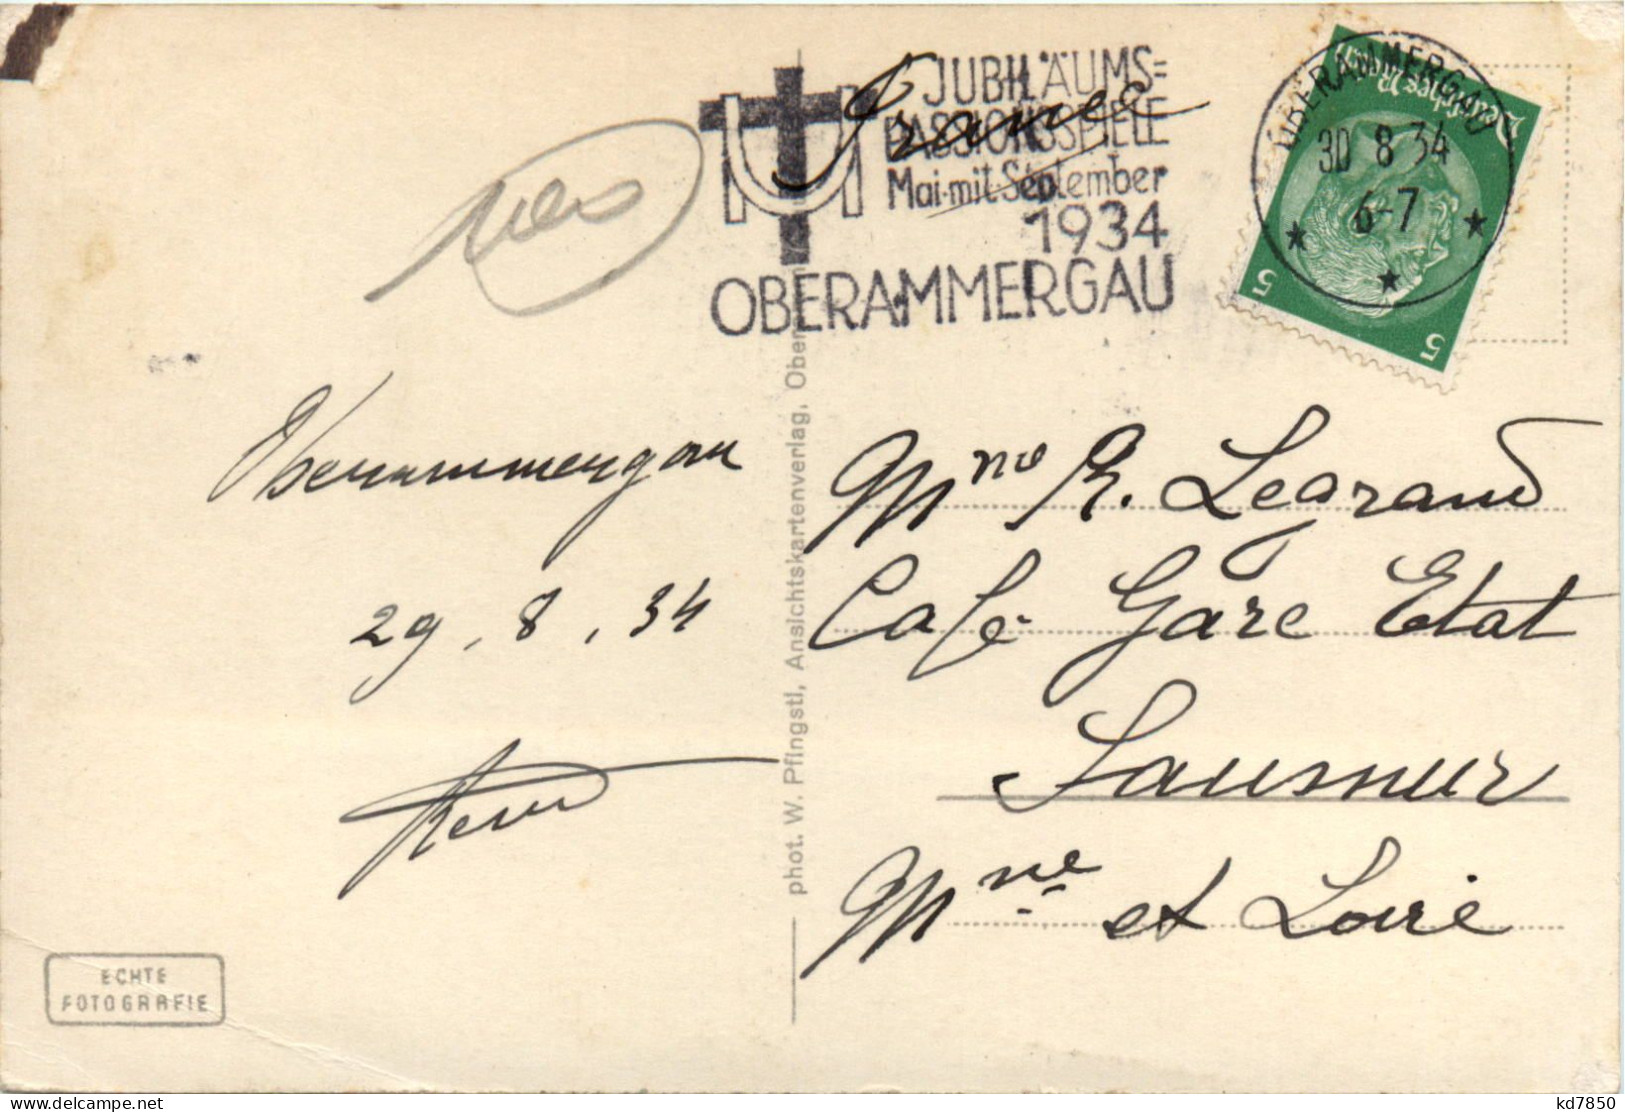 JUBILÄUMS=
PASSIONSSPIELE
Mai mit September
1934
OBERAMMERGAU
France
OBERAMMERGAU
30 8 34
6-7
Deutsches Reich
5
5
Oberammergau
29.8.34
Mme R. Legrand
Café Gare Etat
Saumur
Mne et Loire
phot. W. Pfingstl, Ansichtskartenverlag, Ober
ECHTE
FOTOGRAFIE
kd7850